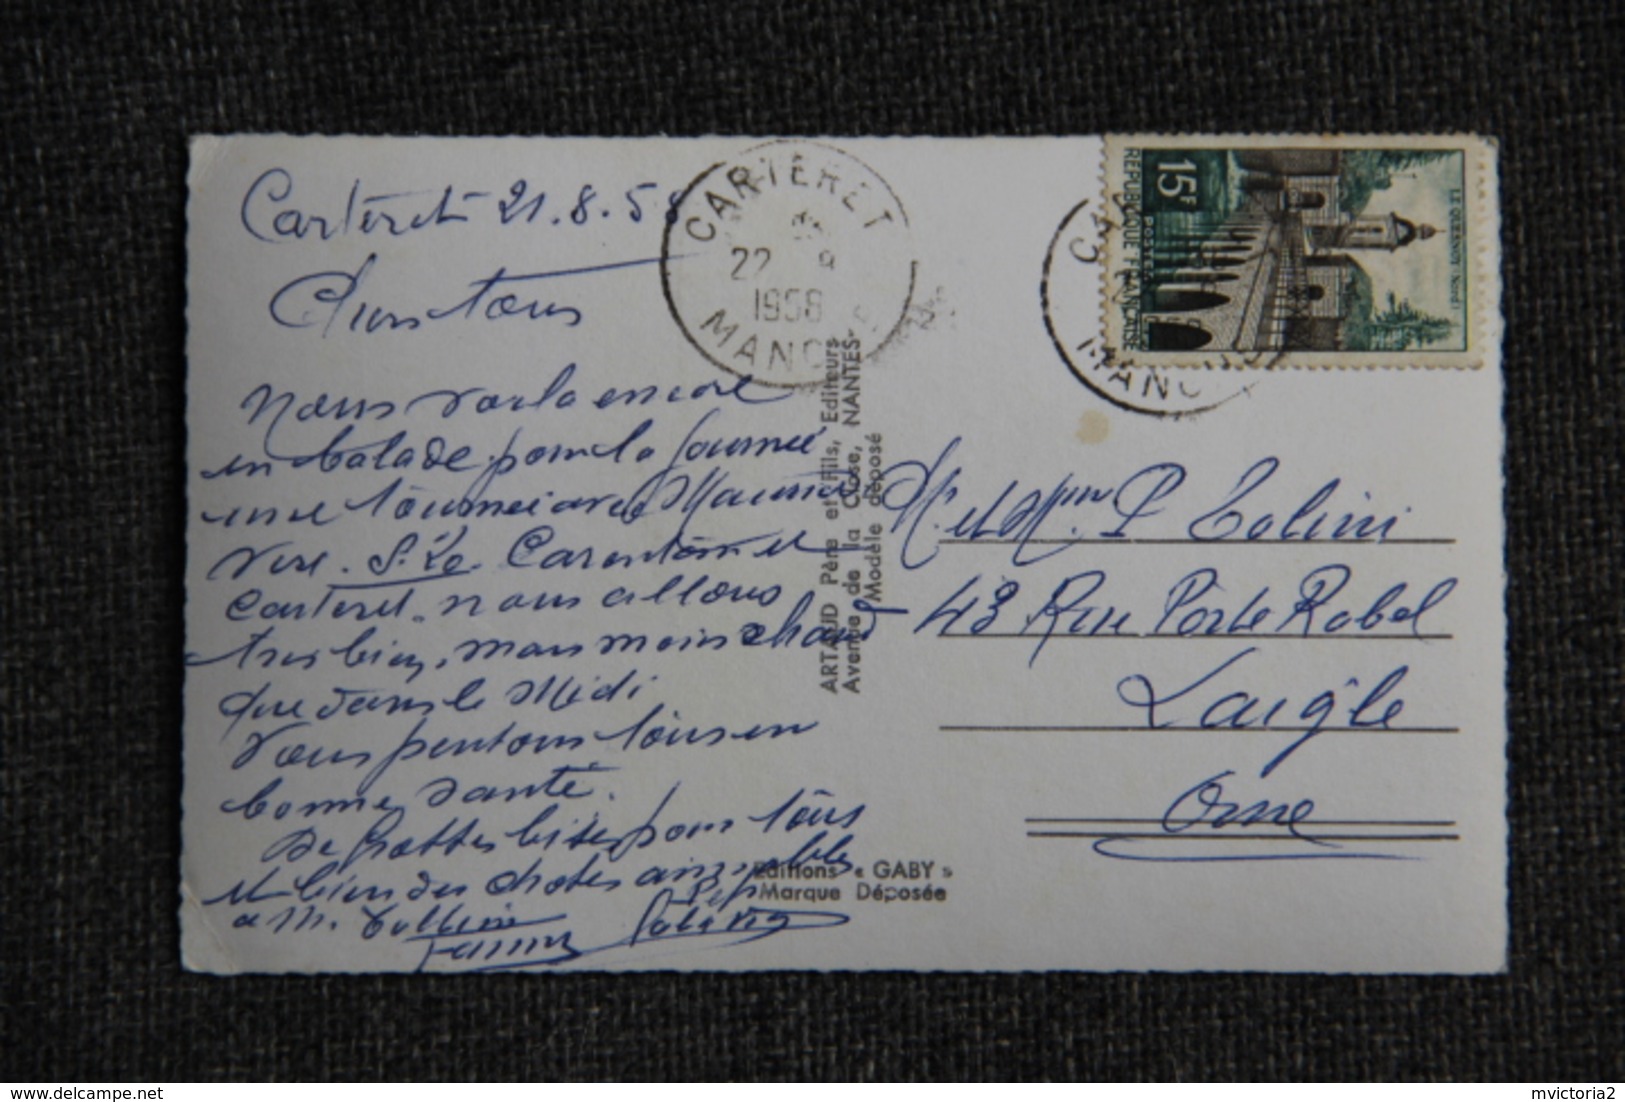 Carteret 21.8.58
Chers tous
Nous voila encore
en balade pour la journée
une tournée avec Maurice
Vire. St. Lo. Carentan et
Carteret. nous allons
tres bien, mais moins chaud
que dans le Midi
Vous pentons tous en
bonne santé.
De grosses bises pour tous
et bien des choses
a M.
Fanny
CARTERET
22 8
1958
MANCHE
ARTAUD Père et Fils, Editeurs
Avenue de la Close, NANTES
Modèle déposé
Editions « GABY »
Marque Déposée
15F
REPUBLIQUE FRANÇAISE
POSTES
LE QUESNOY Nord
MANCHE
Mr et Mme P Tolini
43 Rue Porte Rabel
Laigle
Orne
delcampe.net
mvictoria2